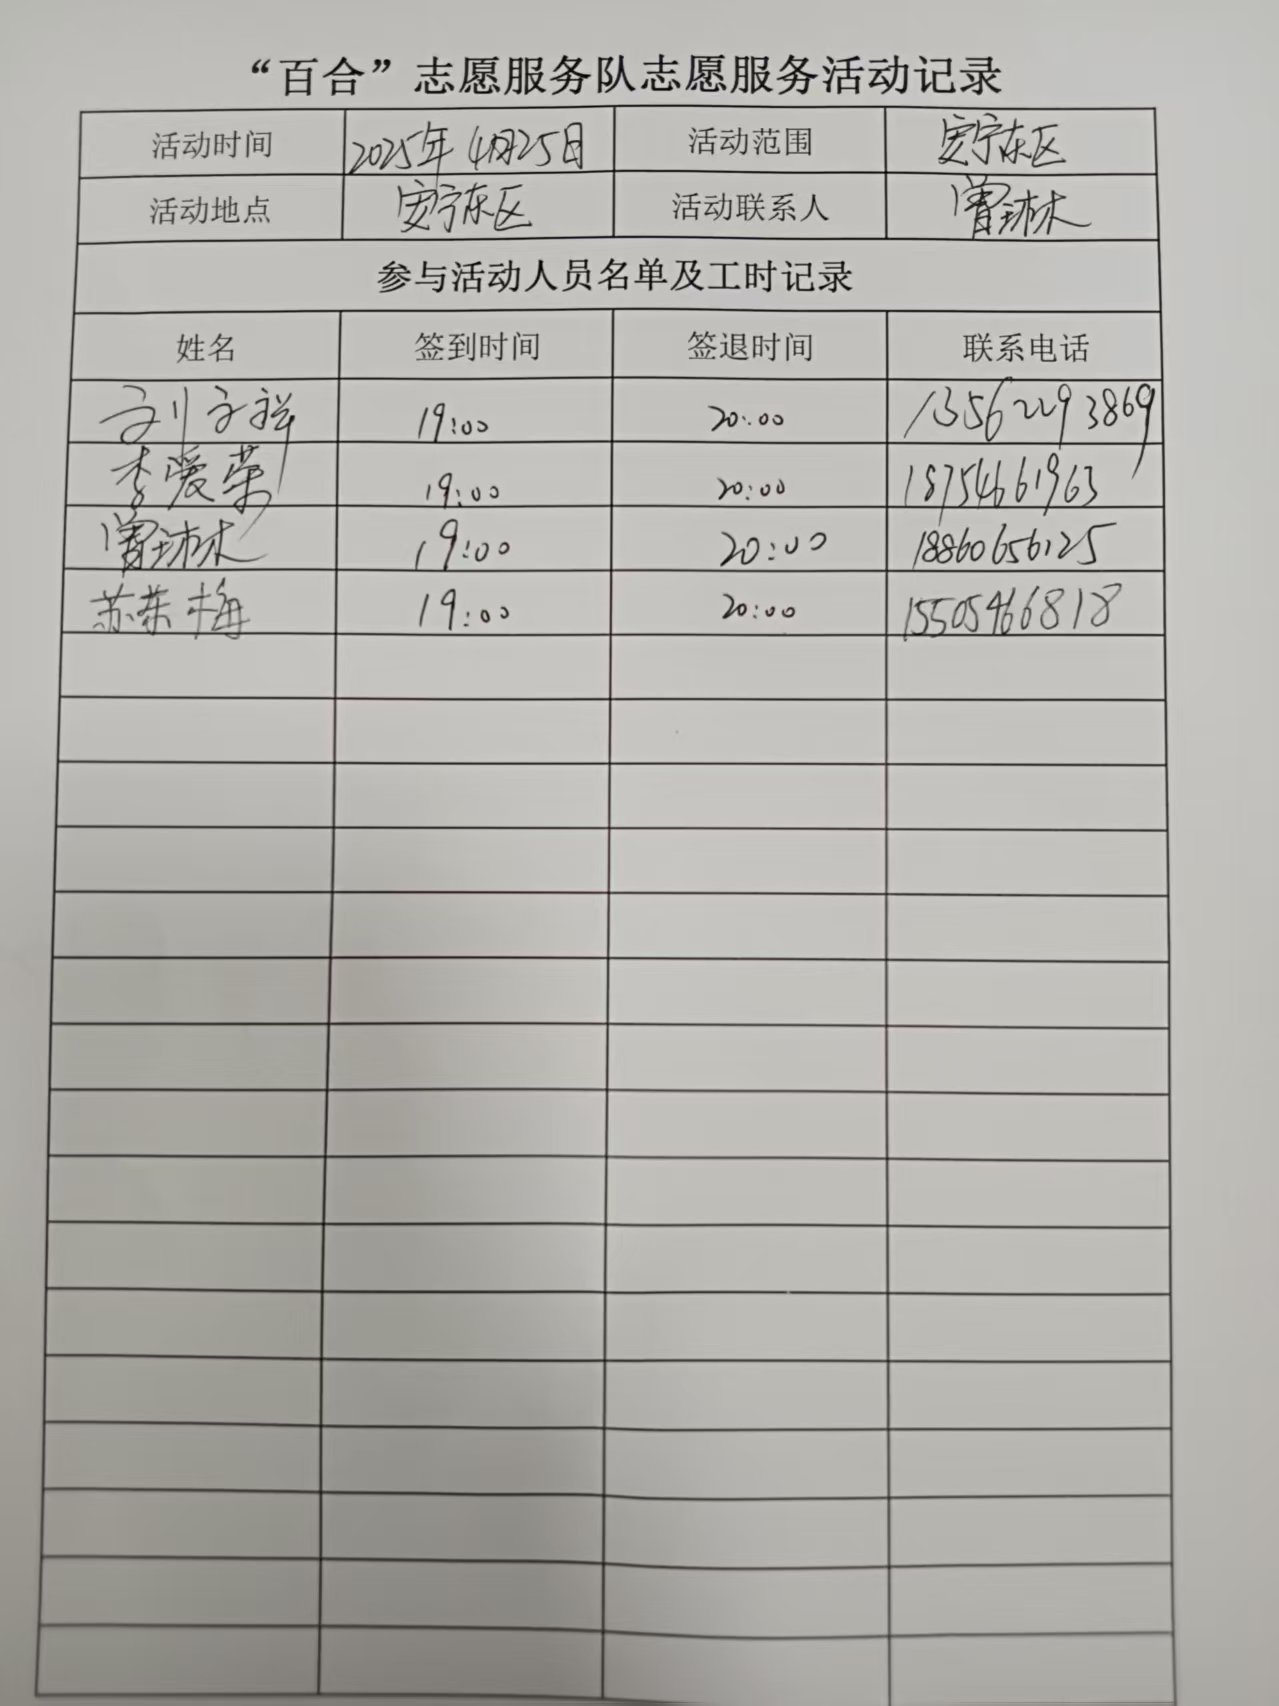 “百合”志愿服务队志愿服务活动记录
活动时间 2025年4月25日 活动范围 安宁东区
活动地点 安宁东区 活动联系人 曾琳林
参与活动人员名单及工时记录
姓名 签到时间 签退时间 联系电话
刘文祥 19:00 20:00 13562293869
李爱荣 19:00 20:00 18754661963
曾琳林 19:00 20:00 18860656125
苏荣梅 19:00 20:00 15505466818